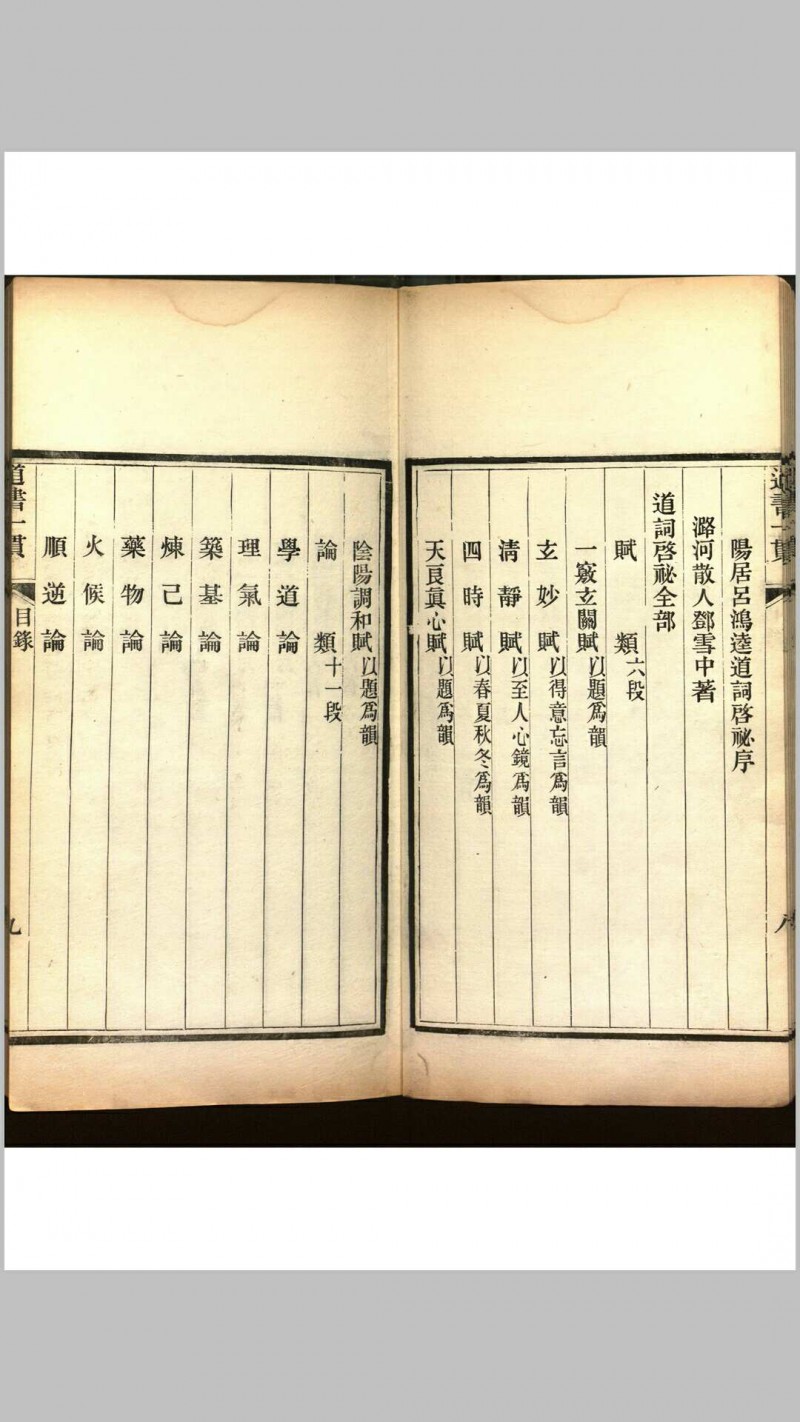 道書一貫
八
陽居呂鴻逵道詞啓祕序
潞河散人鄧雪中著
道詞啓祕全部
賦類六段
一竅玄關賦以題爲韻
玄妙賦以得意忘言爲韻
清靜賦以至人心鏡爲韻
四時賦以春夏秋冬爲韻
天良眞心賦以題爲韻
陰陽調和賦以題爲韻
論類十一段
學道論
理氣論
築基論
煉己論
藥物論
火候論
順逆論
道書一貫
目錄
九